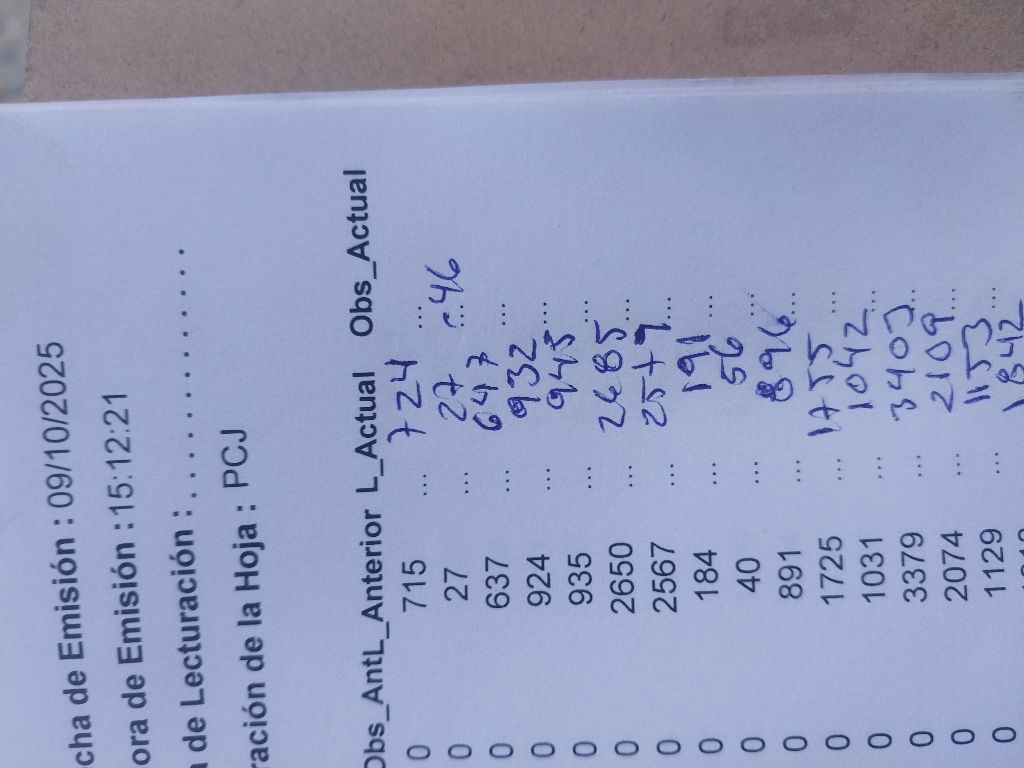 cha de Emisión : 09/10/2025
ora de Emisión :15:12:21
de Lecturación : . . . . . . . . . . . . . .
ración de la Hoja : PCJ
Obs_AntL_Anterior L_Actual Obs_Actual
0 715 ... 724 ...
0 27 ... 27 ... -46
0 637 ... 647 ...
0 924 ... 932 ...
0 935 ... 945 ...
0 2650 ... 2685 ...
0 2567 ... 2579 ...
0 184 ... 191 ...
0 40 ... 56 ...
0 891 ... 896 ...
0 1725 ... 1755 ...
0 1031 ... 1042 ...
0 3379 ... 3403 ...
0 2074 ... 2109 ...
0 1129 ... 1153 ...
1842